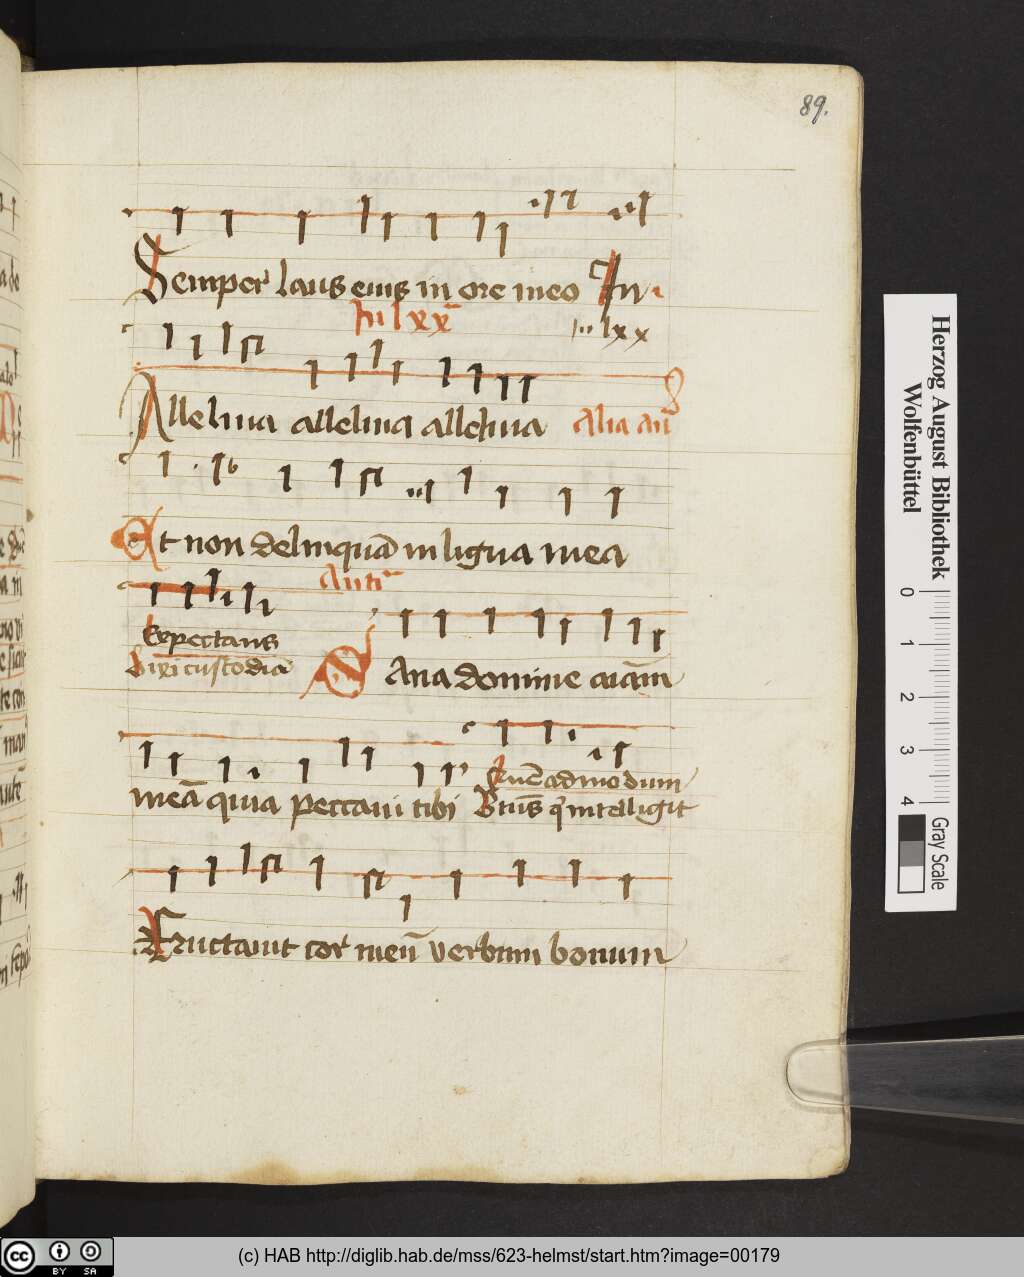 89.
Semper laus eius in ore meo In
In lxx
lxx
Alleluia alleluia alleluia Alia añ
Et non delinquā in ligua mea
Antī
Expectans
Dixi custodiā
Sana domine aīam
meā quia peccaui tibi
Quēadmodum
Btūs q intelligit
Eructauit cor meū verbum bonum
Herzog August Bibliothek
Wolfenbüttel
0 1 2 3 4
Gray Scale
cc BY SA
(c) HAB http://diglib.hab.de/mss/623-helmst/start.htm?image=00179